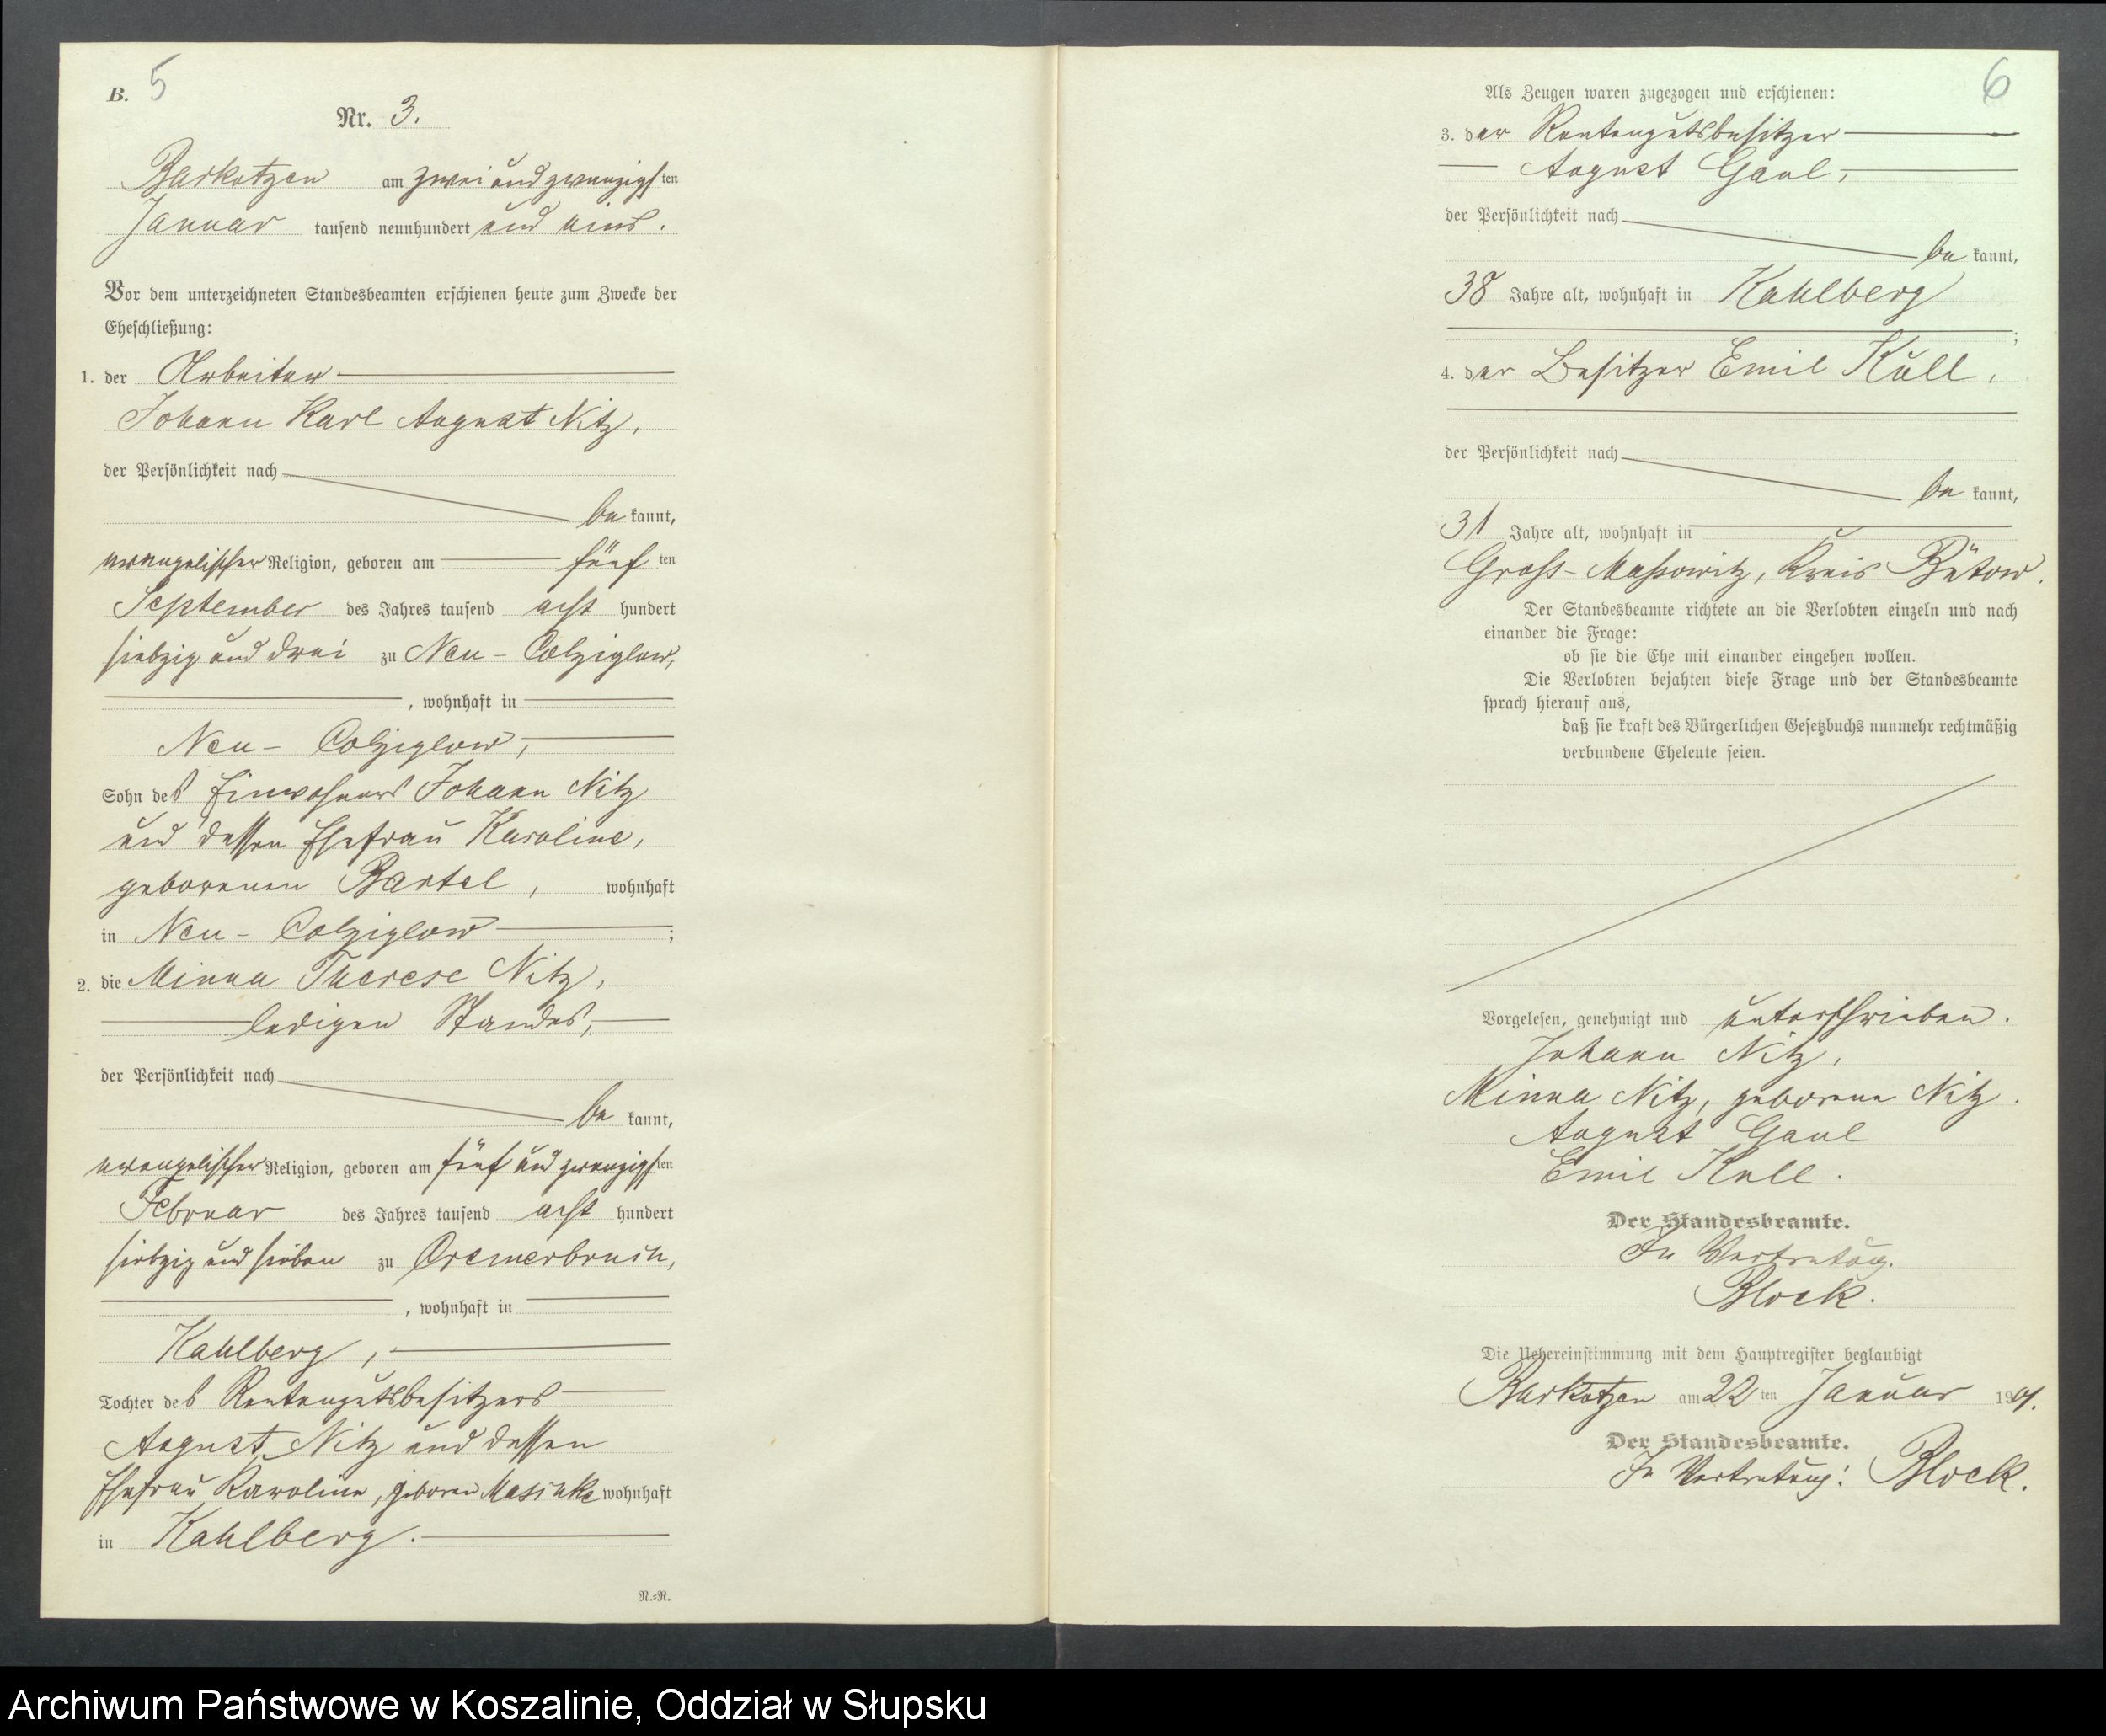 B. 5
Nr. 3.
Barkotzen am zwei und zwanzigsten
Januar tausend neunhundert und eins.
Vor dem unterzeichneten Standesbeamten erschienen heute zum Zwecke der
Eheschließung:
1. der Arbeiter
Johann Karl August Nitz,
der Persönlichkeit nach
bekannt,
evangelischer Religion, geboren am fünften
September des Jahres tausend acht hundert
siebzig und drei zu Neu-Colziglow,
, wohnhaft in
Neu-Colziglow,
Sohn des Einwohners Johann Nitz
und dessen Ehefrau Karoline,
geborenen Bartel, wohnhaft
in Neu-Colziglow;
2. die Minna Therese Nitz,
ledigen Standes,
der Persönlichkeit nach
bekannt,
evangelischer Religion, geboren am fünf und zwanzigsten
Februar des Jahres tausend acht hundert
siebzig und sieben zu Cremerbruch,
, wohnhaft in
Kahlberg,
Tochter des Rentengutsbesitzers
August Nitz und dessen
Ehefrau Karoline, geboren Masinke wohnhaft
in Kahlberg.
N.=N.
6
Als Zeugen waren zugezogen und erschienen:
3. der Rentengutsbesitzer
August Gaul,
der Persönlichkeit nach
bekannt,
38 Jahre alt, wohnhaft in Kahlberg
;
4. der Besitzer Emil Kull,
der Persönlichkeit nach
bekannt,
31 Jahre alt, wohnhaft in
Groß-Massowitz, Kreis Bütow.
Der Standesbeamte richtete an die Verlobten einzeln und nach
einander die Frage:
ob sie die Ehe mit einander eingehen wollen.
Die Verlobten bejahten diese Frage und der Standesbeamte
sprach hierauf aus,
daß sie kraft des Bürgerlichen Gesetzbuchs nunmehr rechtmäßig
verbundene Eheleute seien.
Vorgelesen, genehmigt und unterschrieben.
Johann Nitz,
Minna Nitz, geborene Nitz.
August Gaul
Emil Kull.
Der Standesbeamte.
In Vertretung.
Block.
Die Uebereinstimmung mit dem Hauptregister beglaubigt
Barkotzen am 22ten Januar 1901.
Der Standesbeamte.
In Vertretung: Block.
Archiwum Państwowe w Koszalinie, Oddział w Słupsku